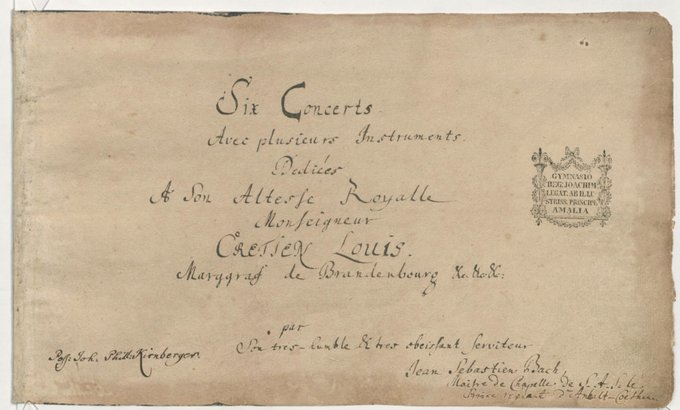 Six Concerts
Avec plusieurs Instruments.
Dediées
A Son Altesse Royalle
Monseigneur
CRETIEN LOUIS.
Marggraf de Brandenbourg &c:&c:&c:
par
Son tres-humble & tres obeissant serviteur
Jean Sebastien Bach,
Maitre de Chapelle de S. A. S. le
Prince regnant d'Anhalt-Coethen.
Poss: Joh. Phil. Kirnberger.
GYMNASIO
REG. JOACHIM.
LEGAT. AB ILLU
STRISS. PRINCIPE
AMALIA